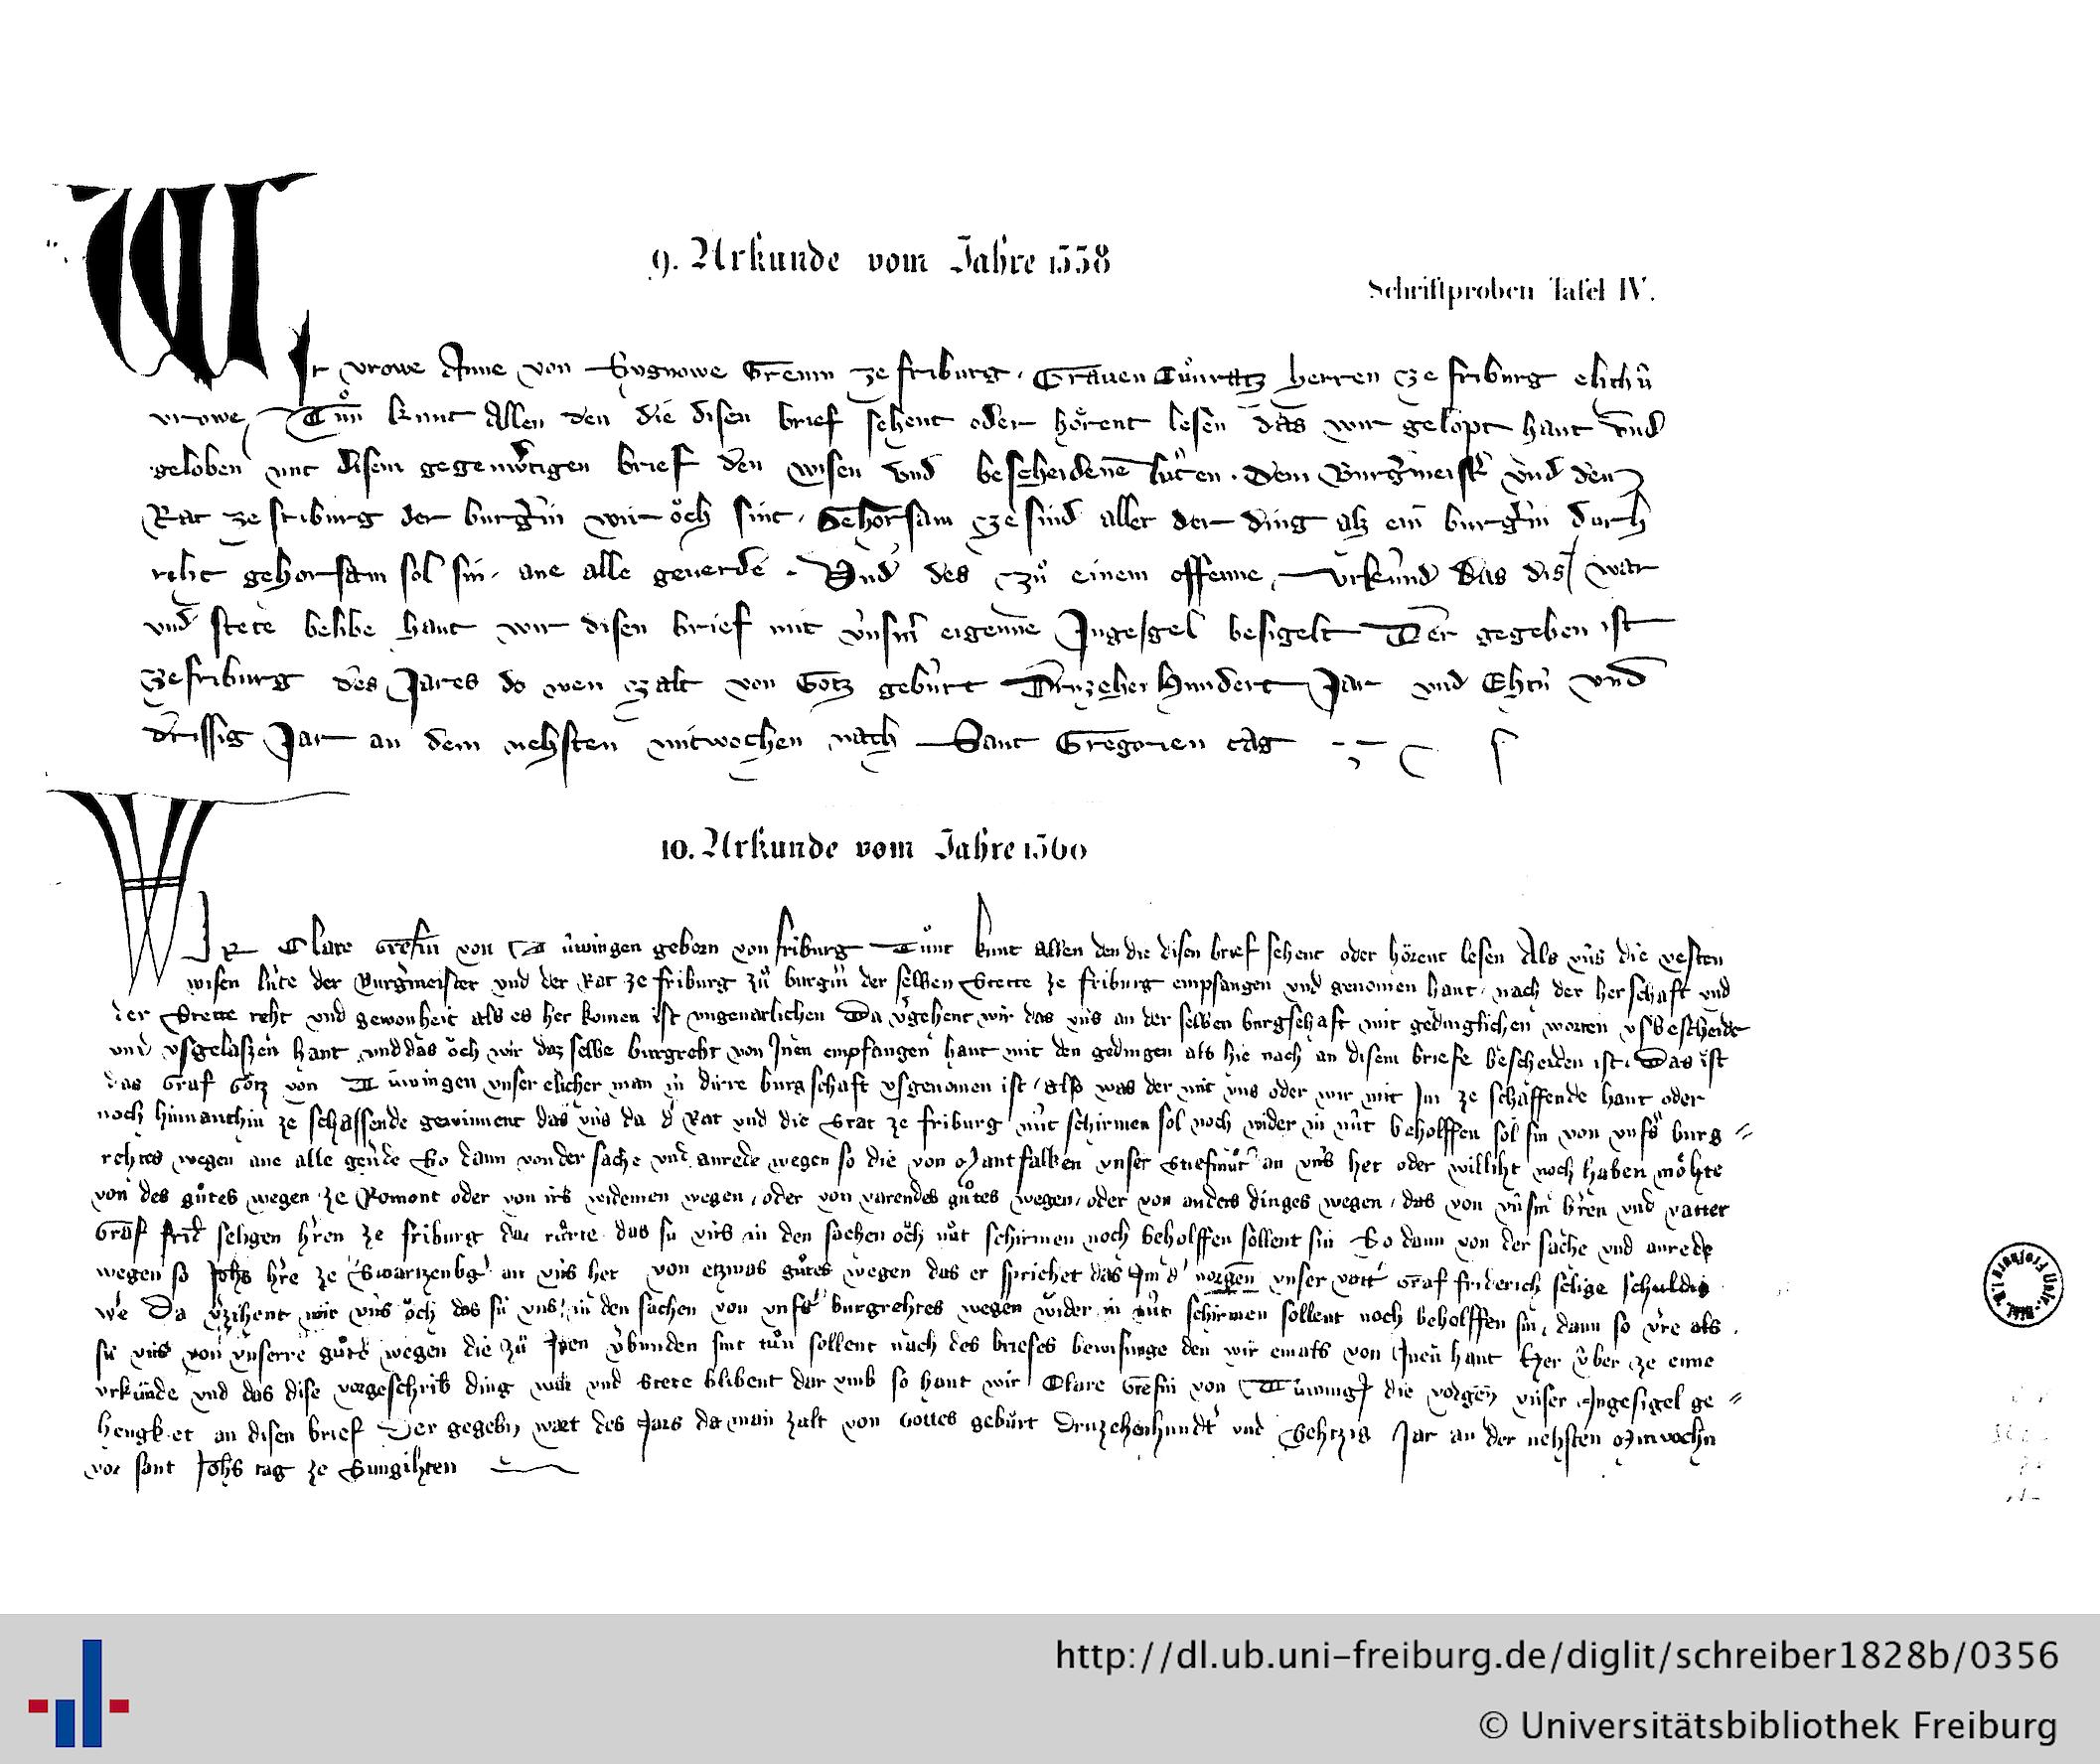 9. Urkunde vom Jahre 1338
Schriftproben Tafel IV.
Wir vrowe Anne von Sygnowe Grenin ze friburg. Grauen Cuͦnratz herren ze friburg elichuͥ
vrowe, Tuͦn kunt Allen den die disen brief sehent oder hoͤrent lesen das wir gelopt hant vnd
geloben mit disem gegenwͤrtigen brief den wisen vnd bescheidenē luͥten. Dem Burgͤmeist͛ vnd den
Rat ze friburg der burgͤin wir oͤch sint. Gehorsam ze sind aller der ding alz ein burgͤin durh
reht gehorsam sol sin. ane alle geuerde. Vnd des zuͦ einem offenne, vrkuͥnd das dis war
vnd stete belibe hant wir disen brief mit vͥnsm͛ eigenne Jngesigel besigelt Der gegeben ist
ze friburg des Jares do men zalt von Gotz gebuͥrt Druzehen Hundert Jar vnd Ehtuͥ vnd
drissig Jar an dem nehsten mitwochen nach Sant Gregorien tag
10. Urkunde vom Jahre 1360
WJR Clare Grefin von Tuͥwingen geborn von friburg Tuͦnt kunt allen den die disen brief sehent oder hoͤrent lesen Als vns die vesten
wisen luͥte der Burgͤmeister vnd der Rat ze friburg zuͦ burgͤin der selben Stette ze friburg empfangen vnd genomen hant. nach der herschaft vnd
der Stette reht vnd gewonheit als es her komen ist vngeuarlichen Da v͛gehent wir das vns an der selben burgschaft mit gedinglichen worten vsbescheidē
vnd vsgelaszen hant vnd das oͤch wir daz selbe burgreht von Jnen empfangen hant mit den gedingen als hie nach an disem briefe bescheiden ist. Das ist
das Graf Goͤtz von Tuͥwingen vnser elicher man in dirre burgschaft vsgenomen ist, also was der mit vns oder wir mit Jm ze schaffende hant oder
noch hinnanthin ze schaffende gewinnent das vns da d͛ Rat vnd die Stat ze friburg nuͥt schirmen sol noch wider in nuͥt beholffen sol sin von vnss͛ burg=
rehtes wegen ane alle geu͛de So dann von der sache vnd anrede wegen so die von Mantfalken vnser Stiefmuͦt͛ an vns het oder villiht noch haben moͤhte
von des guͦtes wegen ze Romont oder von irs widemen wegen, oder von varendes guͦtes wegen, oder von anders dinges wegen, das von vnsm͛ h͛ren vnd vatter
Graf frid͛ seligen h͛ren ze friburg dar ruͦrte das su vns in den sachen oͤch nuͥt schirmen noch beholffen soͤllent sin So dann von der sache vnd anrede
wegen so Johs h͛re ze Swartzenbg͛ an vns het von etzwas guͦtes wegen das er sprichet das Jm d͛ vorgen͛ vnser vatt͛ Graf friderich selige schuldig
we͛ Da v͛zihent wir vns oͤch das suͥ vns in den sachen von vnss͛ burgrehtes wegen wider in nuͥt schirmen soͤllent noch beholffen sin, dann so v͛re als
suͥ vns von vnserre guͦte wegen die zuͦ Jnen v͛bunden sint tuͦn sollent nach des briefes bewisunge den wir emals von Jnen hant Her vͥber ze eime
vrkuͥnde vnd das dise vorgeschrib͛ ding war vnd Stete blibent dar vmb so hant wir Clare Grefin von Tuͥwing͛ die vorgen͛ vnser Jngesigel ge=
hengket an disen brief Der gegeben wart des Jars da man zalt von Gottes gebuͥrt Druzehenhundt͛ vnd Sehtzig Jar an der nehsten Mitwochn
vor sant Johs tag ze Sungihten
http://dl.ub.uni-freiburg.de/diglit/schreiber1828b/0356
© Universitätsbibliothek Freiburg